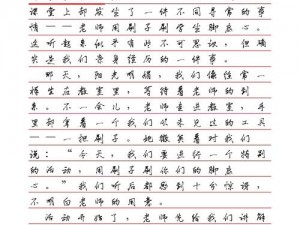 课堂上却发生了一件不同寻常的事
情——老师用刷子刷学生脚底心。
这听起来似乎有些不可思议,但确
实是我们亲身经历的一件事。
那天,阳光明媚,我们像往常一
样坐在教室里,等待着老师的到
来。不一会儿,老师走进教室,手
里却拿着一个我们从未见过的工具
——一把刷子。她微笑着对我们
说:“今天,我们要进行一个特别
的活动,用刷子刷你们的脚底
心。”我们听后都感到十分惊讶,
不明白老师的用意。
活动开始了,老师先给我们讲解